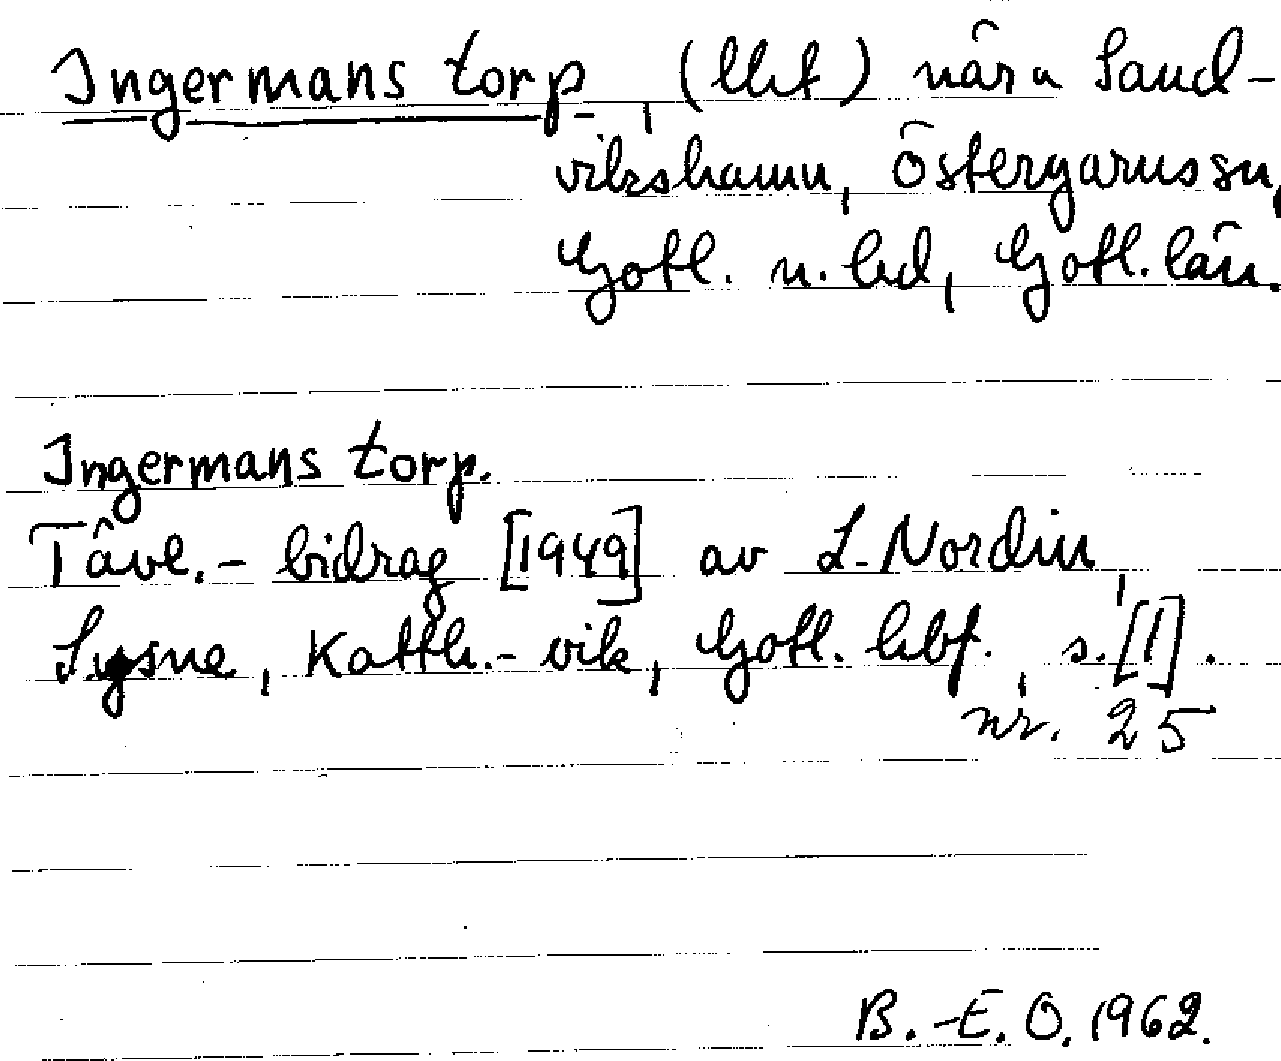 Ingermans torp, (lht) nära Sand-
vikshamn, Östergarns sn,
Gotl. n. hd, Gotl. län.
Ingermans torp.
Tävl.- bidrag [1949] av L. Nordin,
Sysne, Katth.- vik, Gotl. hbf., s. [1].
nr. 25
B.-E. O. 1962.